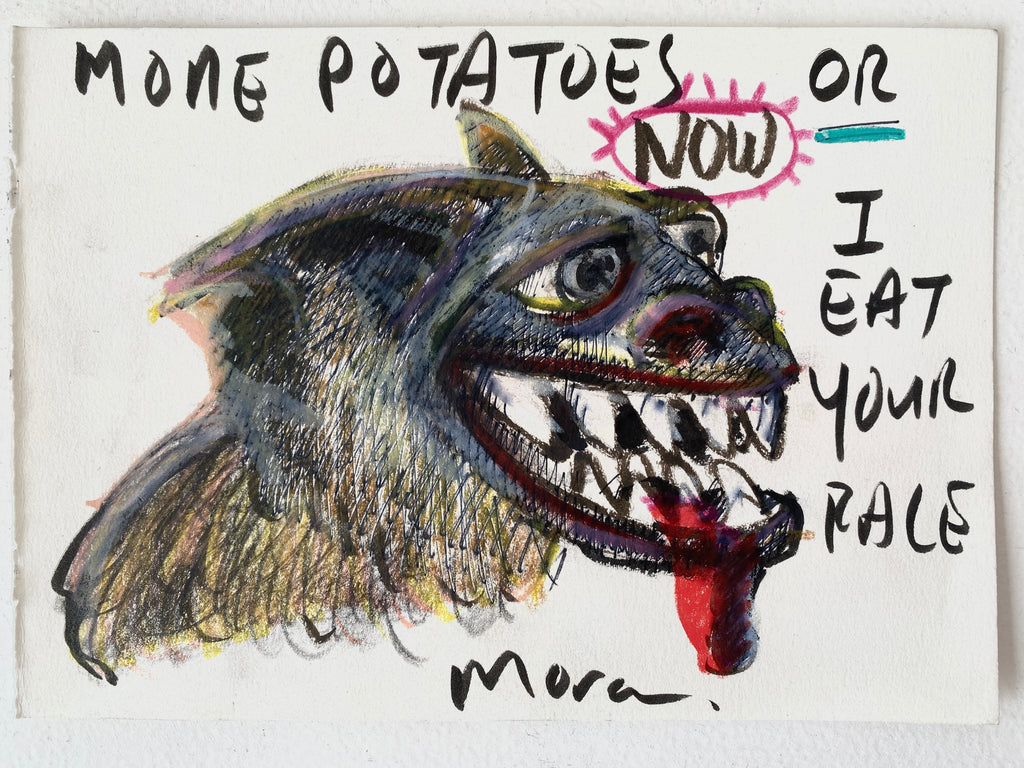 MORE POTATOES OR
NOW
I
EAT
YOUR
RACE
Mora.